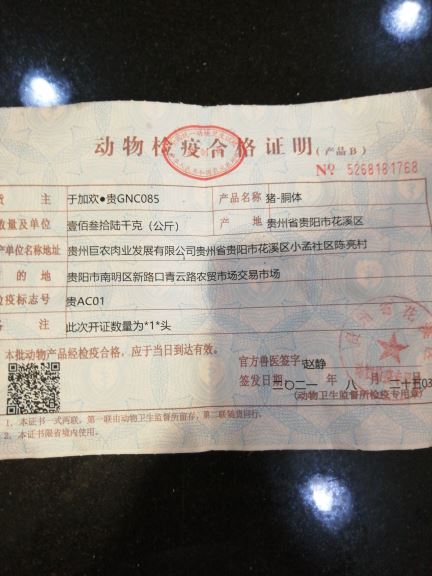 动物检疫合格证明(产品B)
№ 5268181768
货 主 于加欢●贵GNC085 产品名称 猪-胴体
数量及单位 壹佰叁拾陆千克（公斤） 产 地 贵州省贵阳市花溪区
产单位名称地址 贵州巨农肉业发展有限公司贵州省贵阳市花溪区小孟社区陈亮村
目 的 地 贵阳市南明区新路口青云路农贸市场交易市场
检疫标志号 贵AC01
备 注 此次开证数量为*1*头
本批动物产品经检疫合格，应于当日到达有效。
官方兽医签字：赵静
签发日期：二〇二一年 八 月 二十五
(动物卫生监督所检疫专用章)
1. 本证书一式两联，第一联由动物卫生监督所留存，第二联随货同行。
2. 本证书限省境内使用。